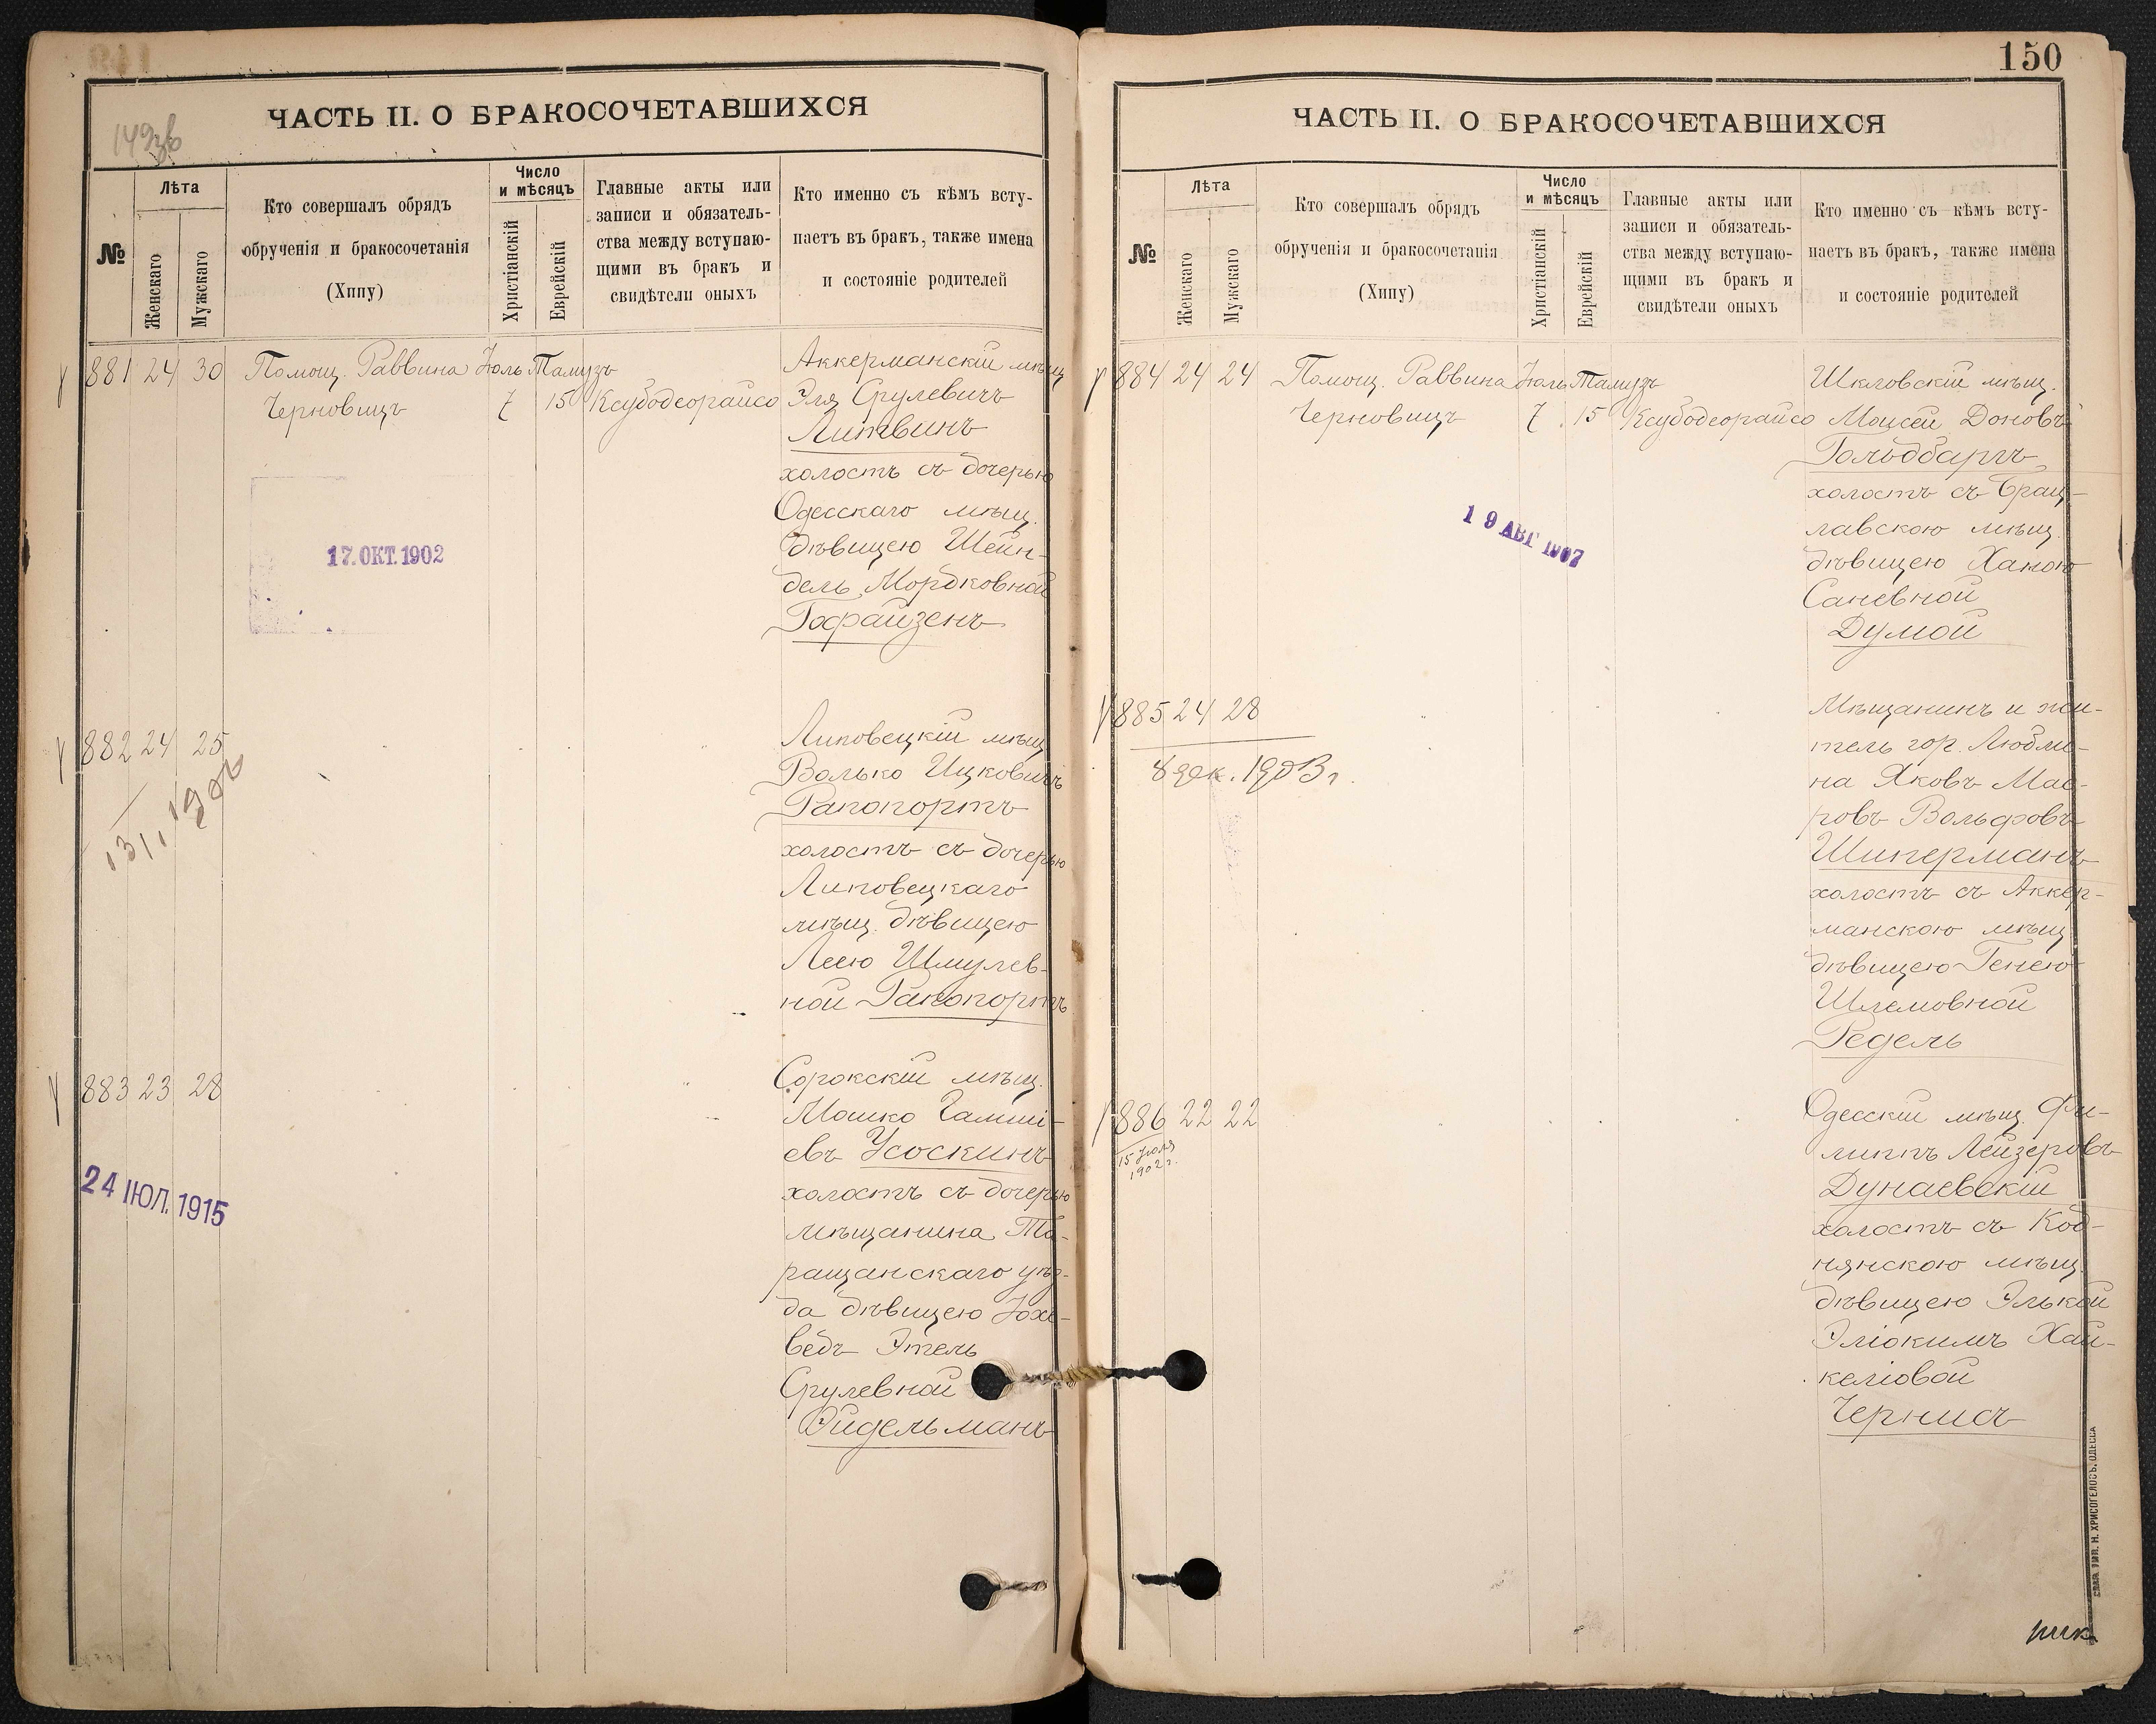 149зв
ЧАСТЬ II. О БРАКОСОЧЕТАВШИХСЯ
№
Лѣта
Женскаго
Мужскаго
Кто совершалъ обрядъ
обрученія и бракосочетанія
(Хипу)
Число
и мѣсяцъ
Христіанскій
Еврейскій
Главные акты или
записи и обязатель-
ства между вступаю-
щими въ бракъ и
свидѣтели оныхъ
Кто именно съ кѣмъ всту-
паетъ въ бракъ, также имена
и состояніе родителей
881 24 30 Помощ. Раввина Іюль Тамузъ
Черновицъ 7 15 Ксубодеорайсо
Аккерманскій мѣщ
Эля Срулевичъ
Литвинъ
холостъ съ дочерью
Одесскаго мѣщ.
дѣвицею Шейн-
дель Мордковной
Гофайзенъ
17.ОКТ.1902
882 24 25
1902
Липовецкій мѣщ
Волько Ицковичъ
Рапопортъ
холостъ съ дочерью
Липовецкаго
мѣщ. дѣвицею
Леею Шмулев-
ной Рапопортъ
883 23 28
24 ІЮЛ. 1915
Сорокскій мѣщ.
Мошко Гамші-
евъ Усоскинъ
холостъ съ дочерью
мѣщанина Та-
ращанскаго уѣз-
да дѣвицею Іохе-
ведъ Этель
Срулевной
Эйдельманъ
150
ЧАСТЬ II. О БРАКОСОЧЕТАВШИХСЯ
№
Лѣта
Женскаго
Мужскаго
Кто совершалъ обрядъ
обрученія и бракосочетанія
(Хипу)
Число
и мѣсяцъ
Христіанскій
Еврейскій
Главные акты или
записи и обязатель-
ства между вступаю-
щими въ бракъ и
свидѣтели оныхъ
Кто именно съ кѣмъ всту-
паетъ въ бракъ, также имена
и состояніе родителей
884 24 24 Помощ. Раввина Іюль Тамузъ
Черновицъ 7 15 Ксубодеорайсо
Шкловскій мѣщ.
Моисей Доновъ
Гольдбаргъ
холостъ съ Брац-
лавскою мѣщ.
дѣвицею Ханою
Саневной
Думой
19 АВГ 1907
885 24 28
8 дек. 1903 г.
Мѣщанинъ и жи-
тель гор. Любли-
на Яковъ Мае-
ровъ Вольфовъ
Шиперманъ
холостъ съ Аккер-
манскою мѣщ
дѣвицею Генею
Шлемовной
Редель
886 22 22
15 Іюля
1902 г.
Одесскій мѣщ. Фи-
липпъ Лейзеровъ
Дунаевскій
холостъ съ Код-
нянскою мѣщ.
дѣвицею Элькой
Эліокимъ Хай-
келіовой
Чернисъ
СЛАВ. ТИП. Н. ХРИСОГЕЛОСЪ, ОДЕССА